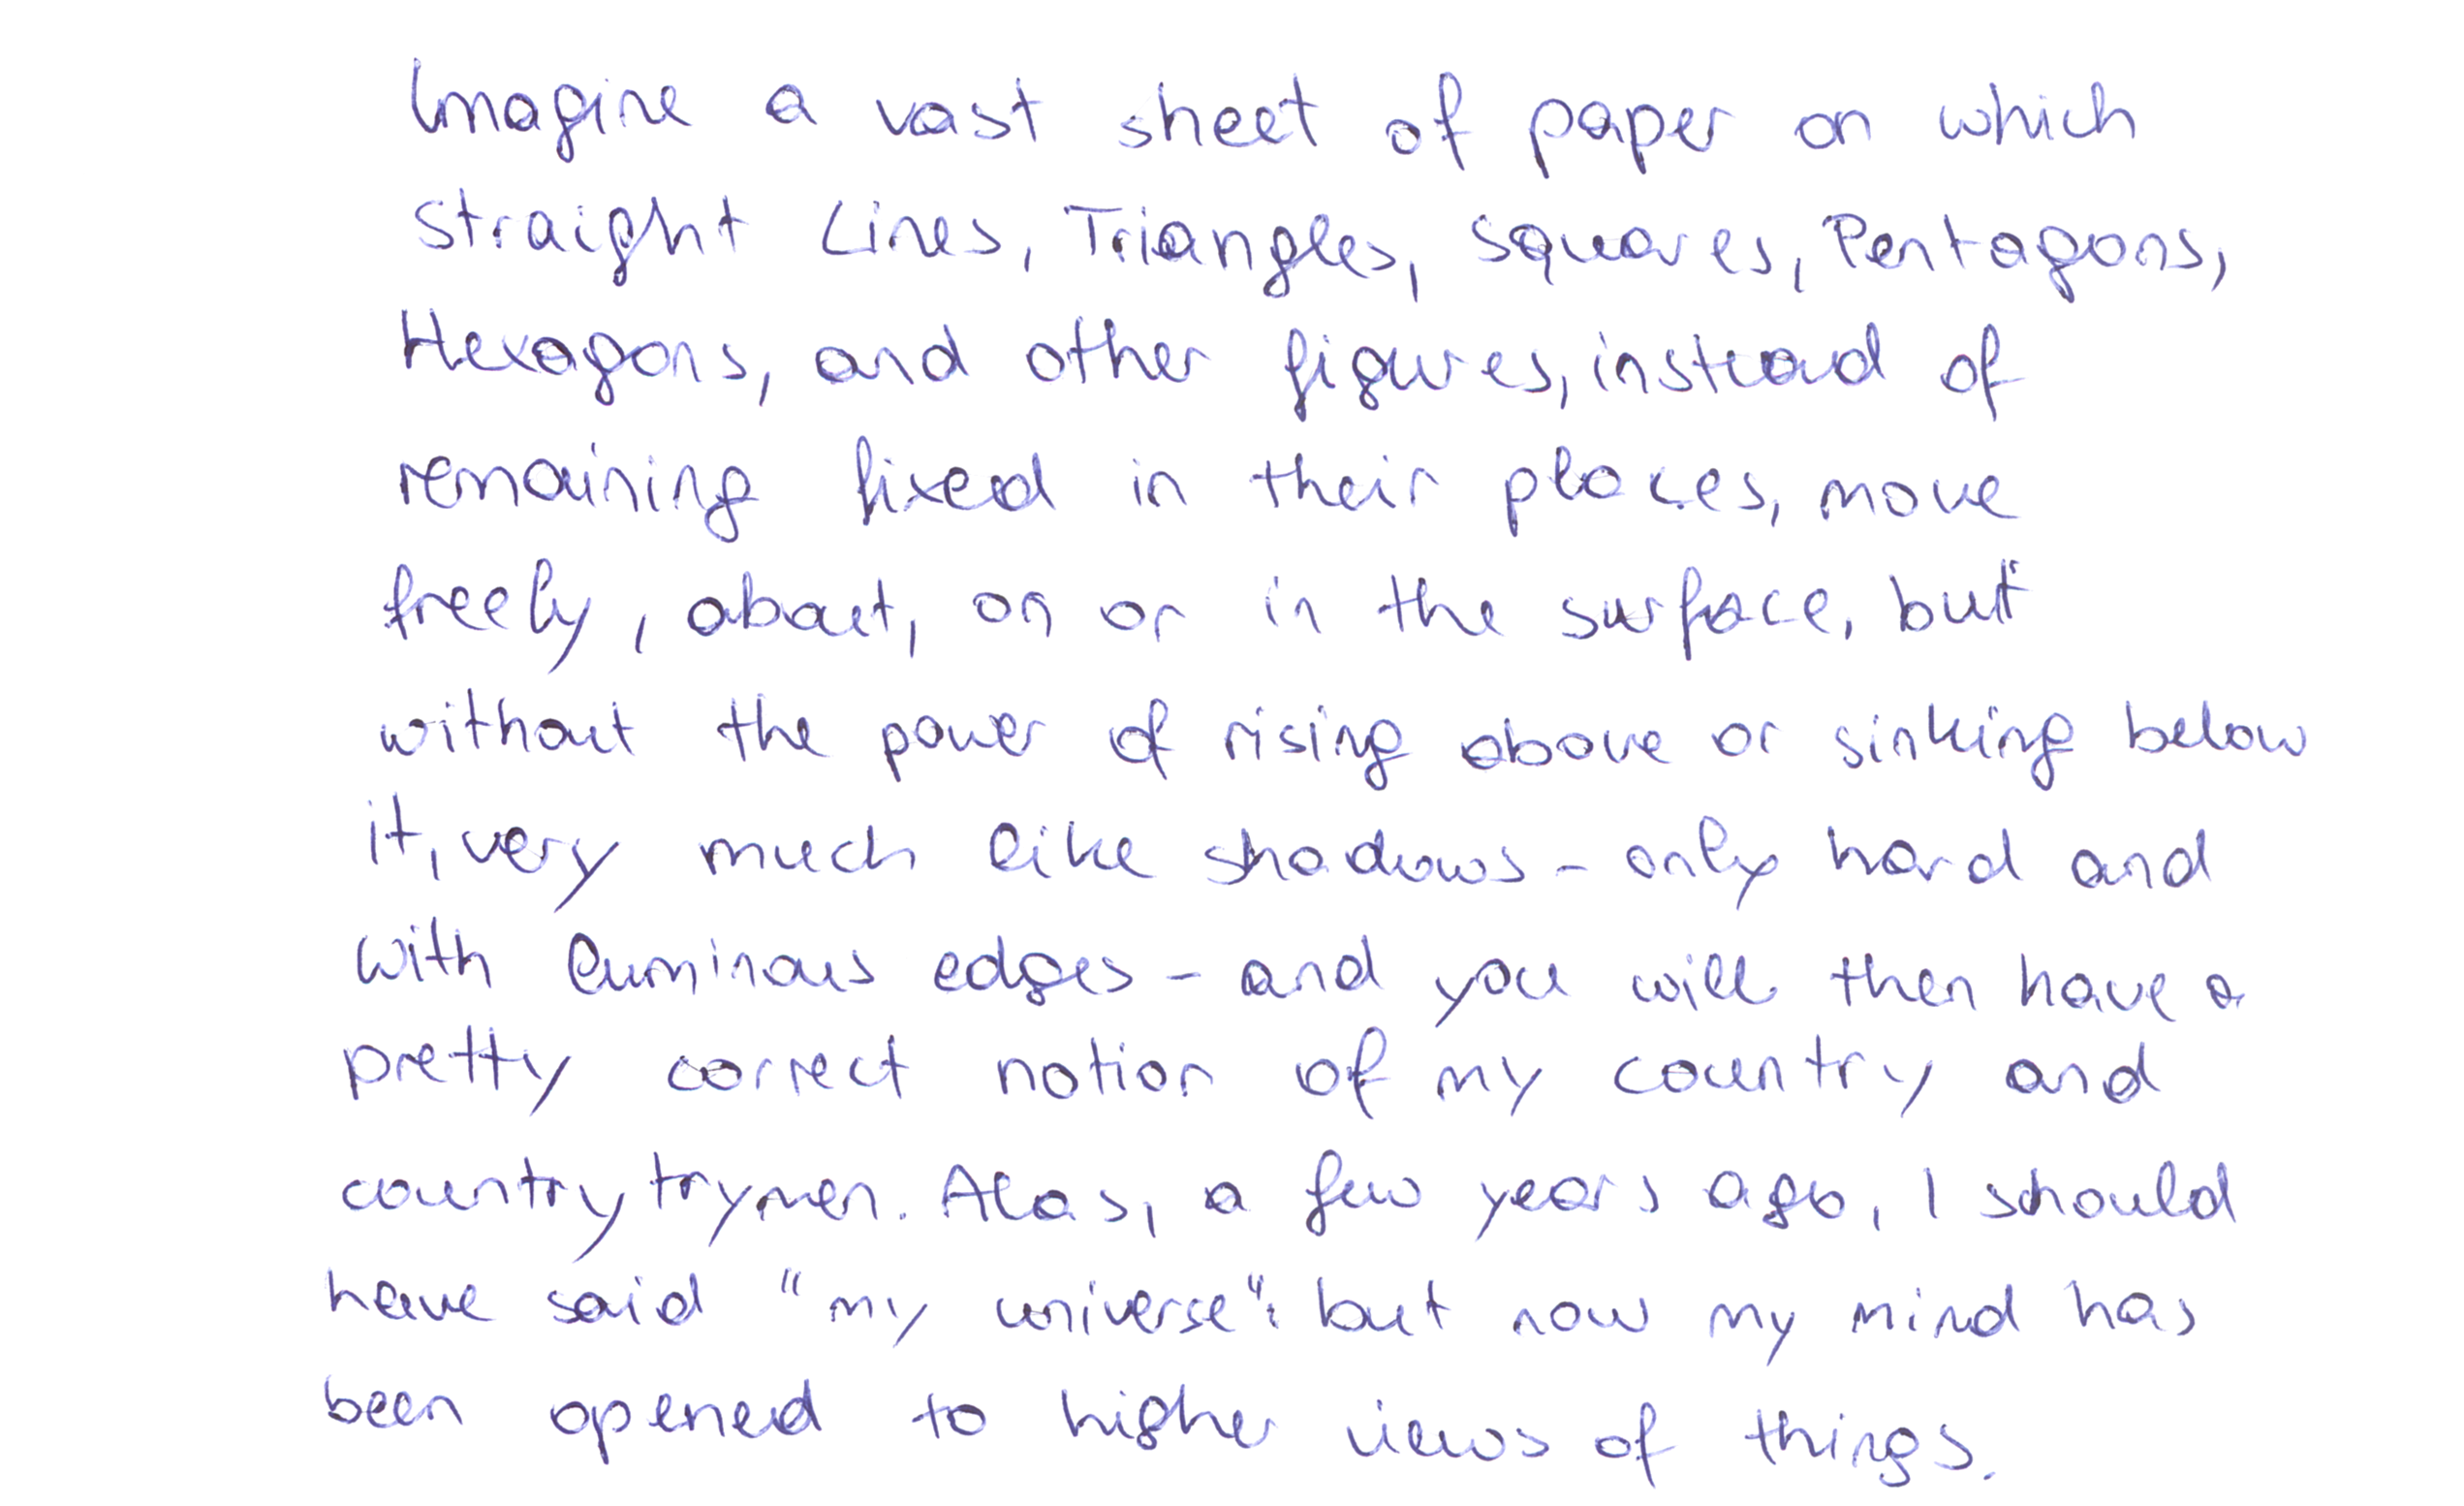 Imagine a vast sheet of paper on which
Straight Lines, Triangles, Squares, Pentagons,
Hexagons, and other figures, instead of
remaining fixed in their places, move
freely, about, on or in the surface, but
without the power of rising above or sinking below
it, very much like shadows - only hard and
with luminous edges - and you will then have a
pretty correct notion of my country and
countrytrymen. Alas, a few years ago, I should
have said "my universe": but now my mind has
been opened to higher views of things.